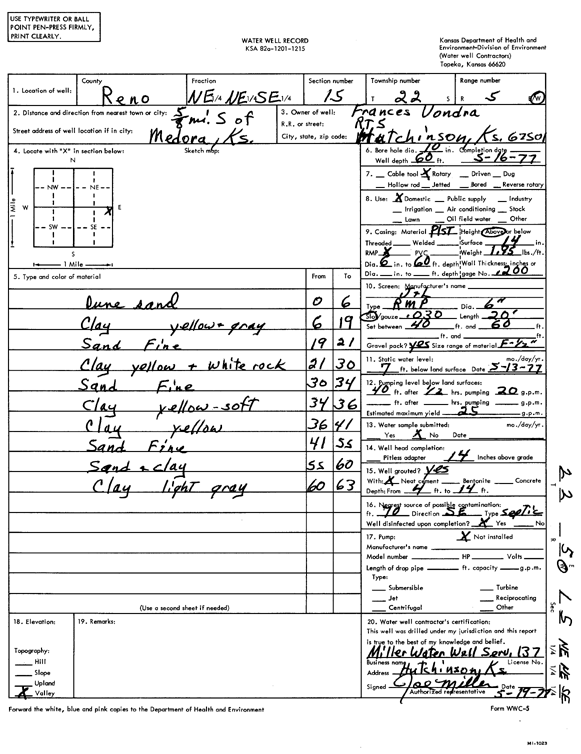 USE TYPEWRITER OR BALL
POINT PEN-PRESS FIRMLY,
PRINT CLEARLY.
WATER WELL RECORD
KSA 82a-1201-1215
Kansas Department of Health and
Environment-Division of Environment
(Water well Contractors)
Topeka, Kansas 66620
1. Location of well:
County
Reno
Fraction
NE 1/4 NE 1/4 SE 1/4
Section number
15
Township number
T 22 S
Range number
R 5 W
2. Distance and direction from nearest town or city: 5/8 mi. S of
Street address of well location if in city: Medora, Ks.
3. Owner of well: Frances Vondra
R.R. or street: Rt5
City, state, zip code: Hutchinson, Ks. 67501
4. Locate with "X" in section below:
Sketch map:
N
NW NE
W X E
SW SE
S
1 Mile
1 Mile
6. Bore hole dia. 10 in. Completion date
Well depth 60 ft. 5-16-77
7. Cable tool X Rotary Driven Dug
Hollow rod Jetted Bored Reverse rotary
8. Use: X Domestic Public supply Industry
Irrigation Air conditioning Stock
Lawn Oil field water Other
9. Casing: Material PLST Height: Above or below
Threaded Welded Surface 14 in.
RMP X PVC Weight 1.95 lbs./ft.
Dia. 6 in. to 60 ft. depth Wall Thickness: inches or
Dia. in. to ft. depth gage No. .200
5. Type and color of material From To
Dune sand 0 6
Clay yellow + gray 6 19
Sand Fine 19 21
Clay yellow + white rock 21 30
Sand Fine 30 34
Clay yellow-soft 34 36
Clay yellow 36 41
Sand Fine 41 55
Sand + clay 55 60
Clay light gray 60 63
(Use a second sheet if needed)
10. Screen: Manufacturer's name
Type RMP Dia. 6"
Slot/gauze .030 Length 20'
Set between 40 ft. and 60 ft.
ft. and ft.
Gravel pack? yes Size range of material F-1/2"
11. Static water level: mo./day/yr.
7 ft. below land surface Date 5-13-77
12. Pumping level below land surfaces:
40 ft. after 1/2 hrs. pumping 20 g.p.m.
ft. after hrs. pumping g.p.m.
Estimated maximum yield 25 g.p.m.
13. Water sample submitted: mo./day/yr.
Yes X No Date
14. Well head completion:
Pitless adapter 14 Inches above grade
15. Well grouted? yes
With: X Neat cement Bentonite Concrete
Depth: From 4 ft. to 14 ft.
16. Nearest source of possible contamination:
ft. 70 Direction SE Type Septic
Well disinfected upon completion? X Yes No
17. Pump: X Not installed
Manufacturer's name
Model number HP Volts
Length of drop pipe ft. capacity g.p.m.
Type:
Submersible Turbine
Jet Reciprocating
Centrifugal Other
18. Elevation:
Topography:
Hill
Slope
Upland
X Valley
19. Remarks:
20. Water well contractor's certification:
This well was drilled under my jurisdiction and this report
is true to the best of my knowledge and belief.
Miller Water Well Serv. 137
Business name License No.
Address Hutchinson, Ks
Signed Joe Miller Date 5-19-77
Authorized representative
Forward the white, blue and pink copies to the Department of Health and Environment
Form WWC-5
T 22
R 5 W
Sec 15
1/4 1/4 1/4 NE NE SE